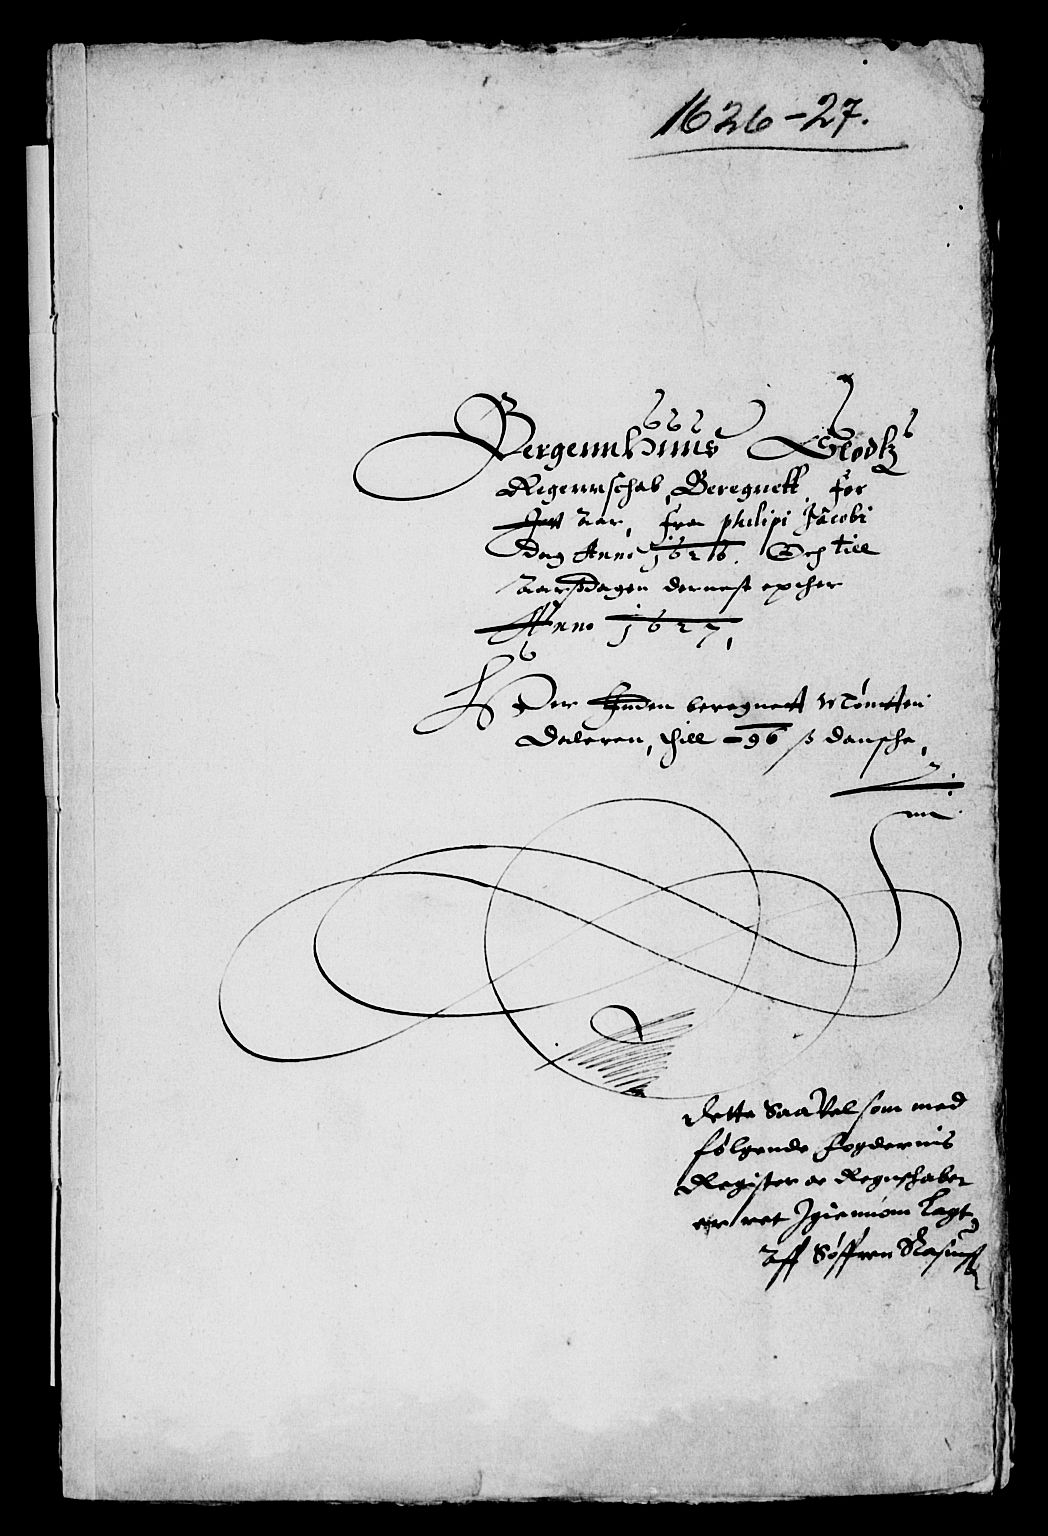 1626-27.
Bergennhuus Slodtz
Regennschab, Beregnett for
Jtt Aar, fra philipi Jacobi
dag Anno 1626. Och till
Aarsdagen dernest epther
Anno 1627,
Der Huden beregnett Møntten
Daleren, thill - 96 ß dansche,
Dette Saa Vel som med
følgende fogdernis
Register oc Regnschaber
er ret Jgiennom lagt
Aff Søffren